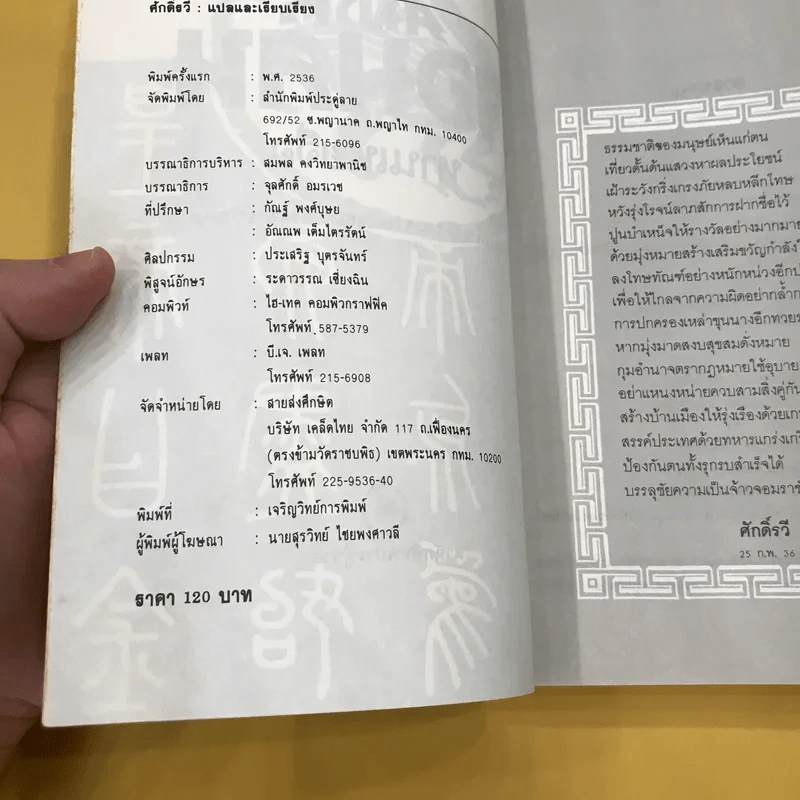 ศักดิ์รวี : แปลและเรียบเรียง
พิมพ์ครั้งแรก : พ.ศ. 2536
จัดพิมพ์โดย : สำนักพิมพ์ประดู่ลาย
692/52 ซ.พญานาค ถ.พญาไท กทม. 10400
โทรศัพท์ 215-6096
บรรณาธิการบริหาร : สมพล คงวิทยาพานิช
บรรณาธิการ : จุลศักดิ์ อมรเวช
ที่ปรึกษา : กัณฐ์ พงศ์บุษย
: อัณณพ เต็มไตรรัตน์
ศิลปกรรม : ประเสริฐ บุตรจันทร์
พิสูจน์อักษร : ระดาวรรณ เชี่ยงฉิน
คอมพิวท์ : ไฮ-เทค คอมพิวกราฟฟิค
โทรศัพท์ 587-5379
เพลท : บี.เจ. เพลท
โทรศัพท์ 215-6908
จัดจำหน่ายโดย : สายส่งศึกษิต
บริษัท เคล็ดไทย จำกัด 117 ถ.เฟื่องนคร
(ตรงข้ามวัดราชบพิธ) เขตพระนคร กทม. 10200
โทรศัพท์ 225-9536-40
พิมพ์ที่ : เจริญวิทย์การพิมพ์
ผู้พิมพ์ผู้โฆษณา : นายสุรวิทย์ ไชยพงศาวลี
ราคา 120 บาท
ธรรมชาติของมนุษย์เห็นแก่ตน
เที่ยวดั้นด้นแสวงหาผลประโยชน์
เฝ้าระวังกริ่งเกรงภัยหลบหลีกโทษ
หวังรุ่งโรจน์ลาภสักการฝากชื่อไว้
ปูนบำเหน็จให้รางวัลอย่างมากมาย
ด้วยมุ่งหมายสร้างเสริมขวัญกำลัง
ลงโทษทัณฑ์อย่างหนักหน่วงอีก
เพื่อให้ไกลจากความผิดอย่าง
การปกครองเหล่าขุนนางอีกทวย
หากมุ่งมาดสงบสุขสมดั่งหมาย
กุมอำนาจตรากฎหมายใช้อุบาย
อย่าแหนงหน่ายควบสามสิ่งคู่กัน
สร้างบ้านเมืองให้รุ่งเรืองด้วย
สรรค์ประเทศด้วยทหารแกร่ง
ป้องกันตนทั้งรุกรบสำเร็จได้
บรรลุชัยความเป็นจ้าวจอม
ศักดิ์รวี
25 ก.พ. 36